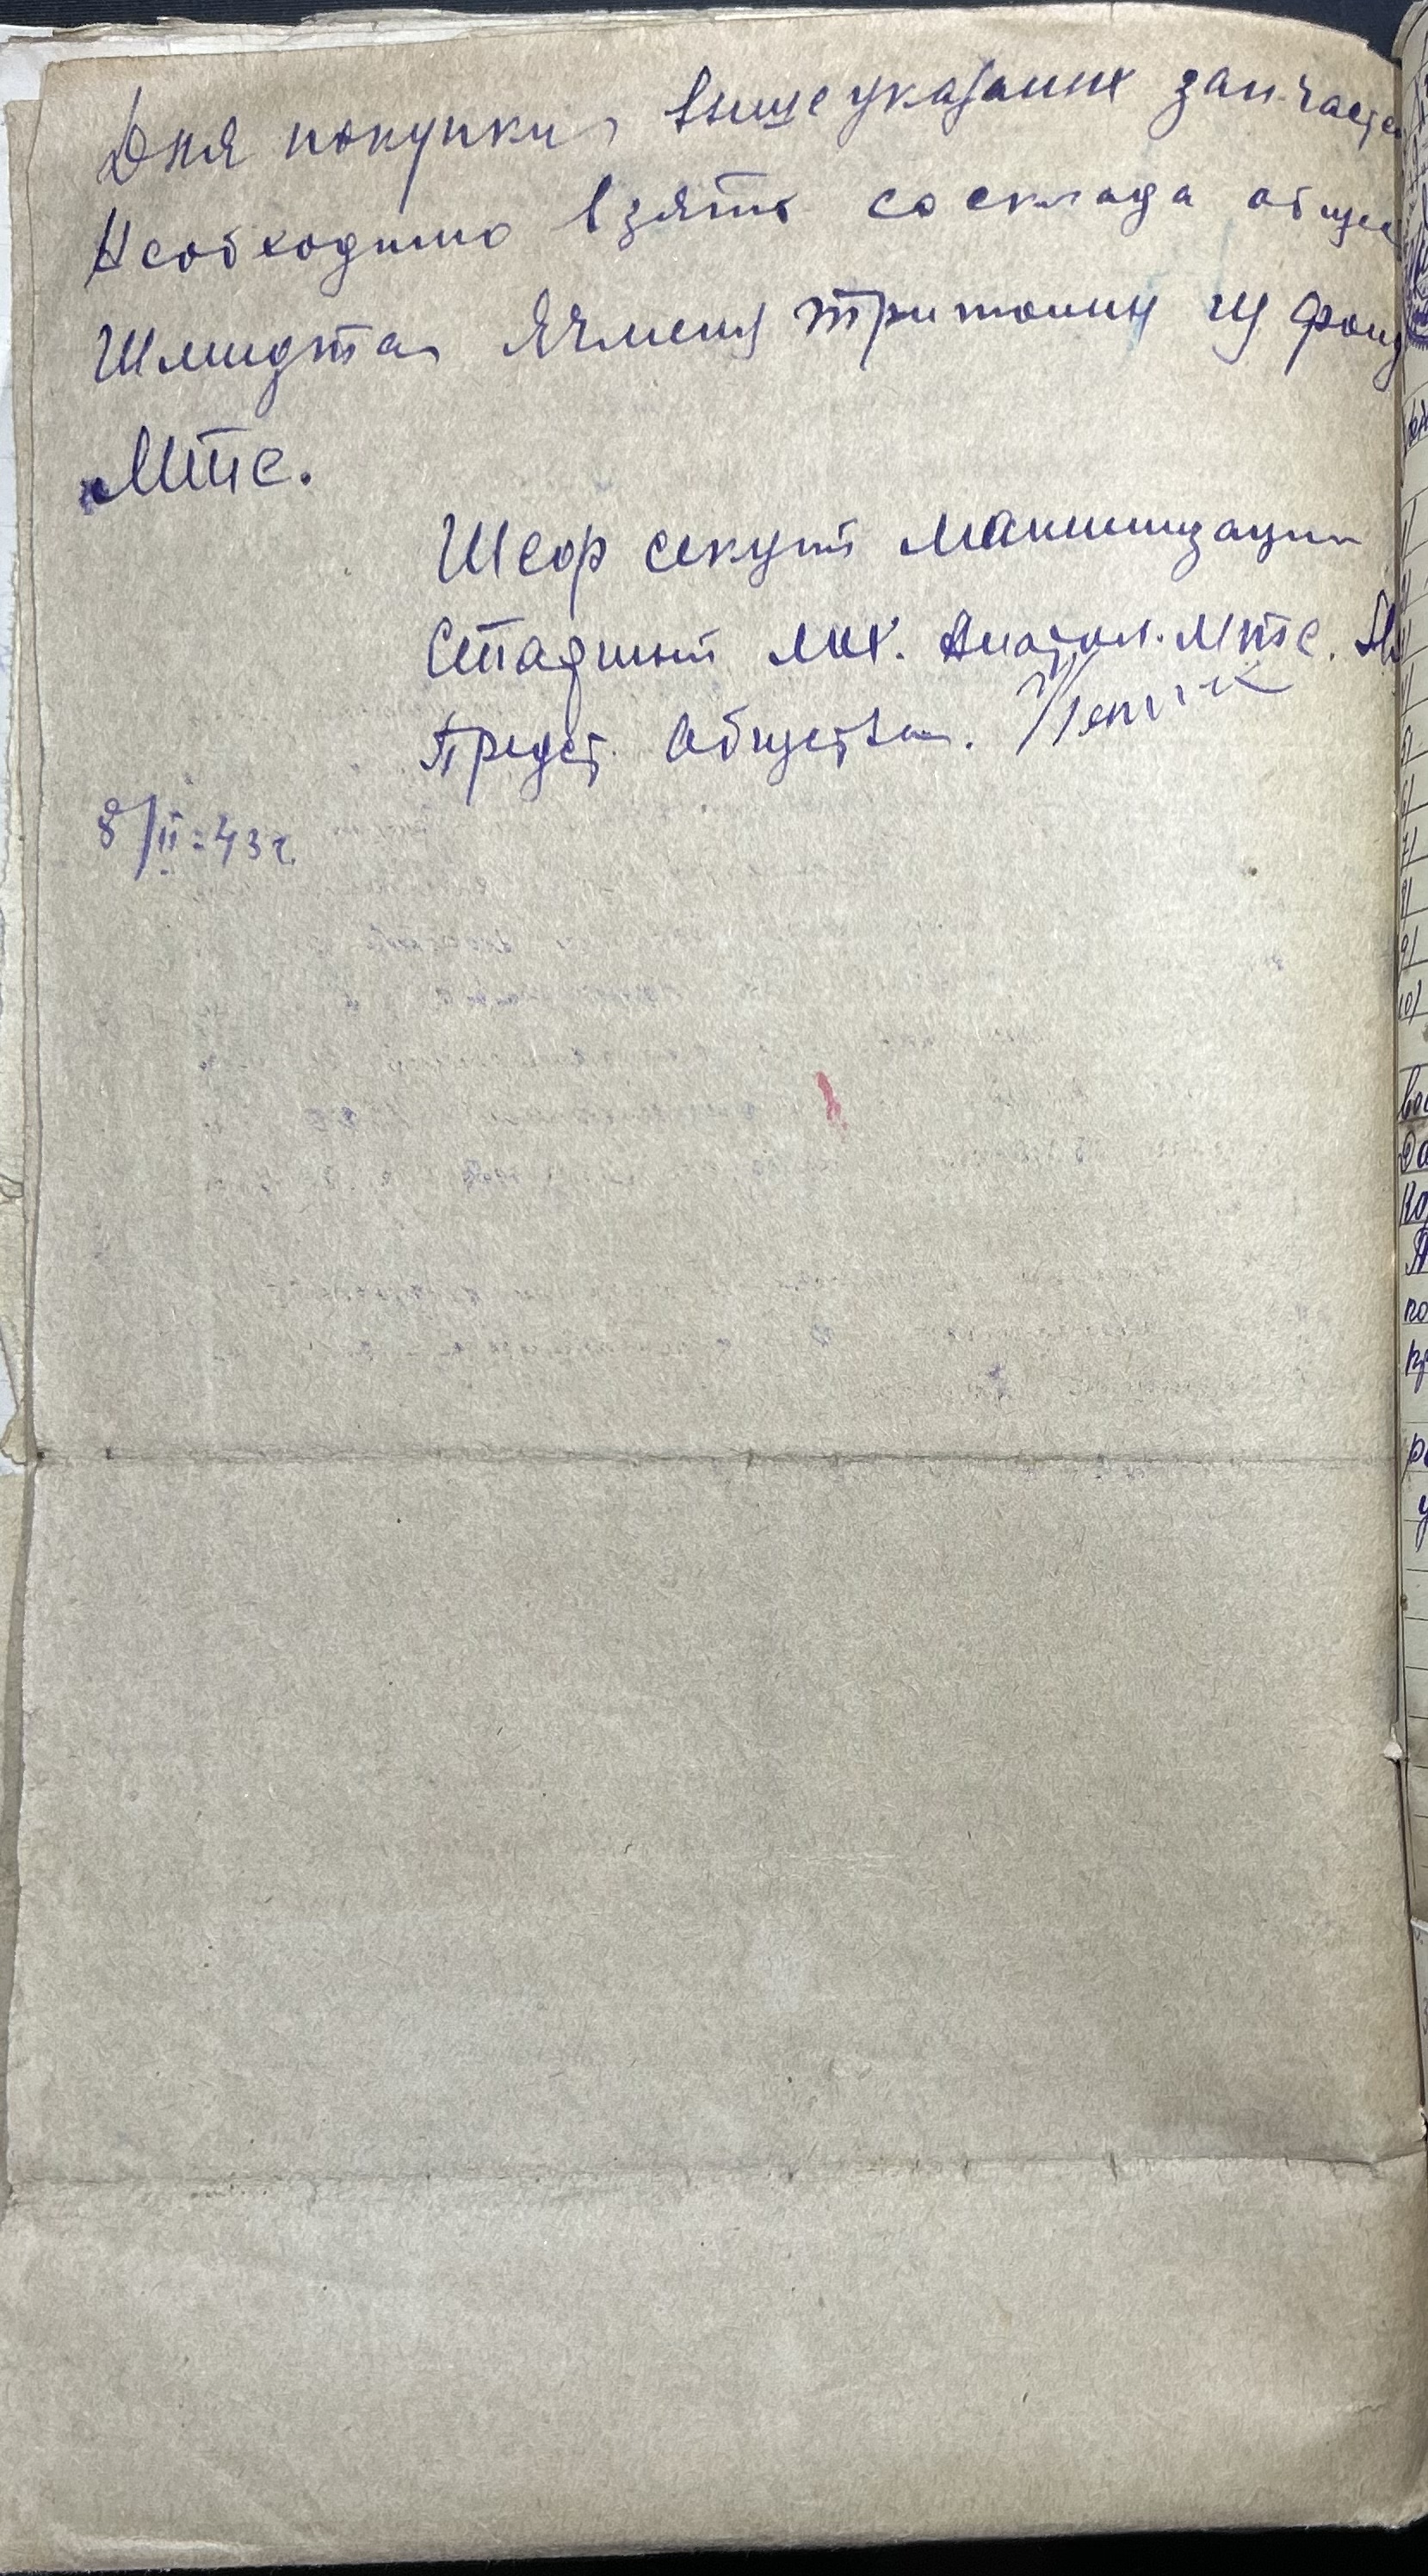 Для покупки вышеуказаних зап.часте
Необходимо взять со склада общес
Шмидта ячменя три тонны из фонд
МТС.
Шеф секции машинизации
Старший мех. МТС.
Предст. Общества.
8/II-43 г.